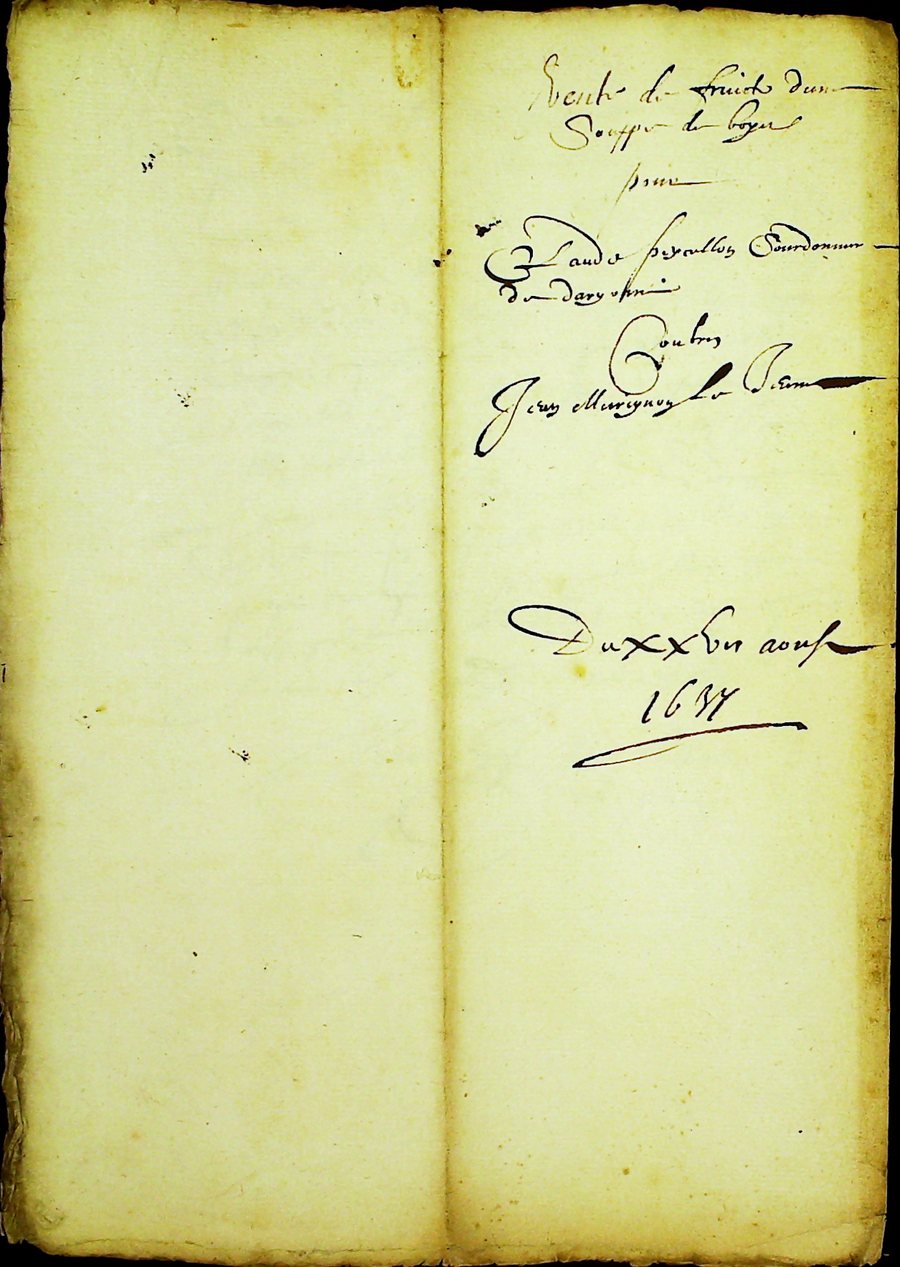 Vente de fruicts dune
Couppe de boys
pour
Claude percellon Courdonnier
de
Contre
Jean Marignon Le Jeune
Du xxvii aoust
1637